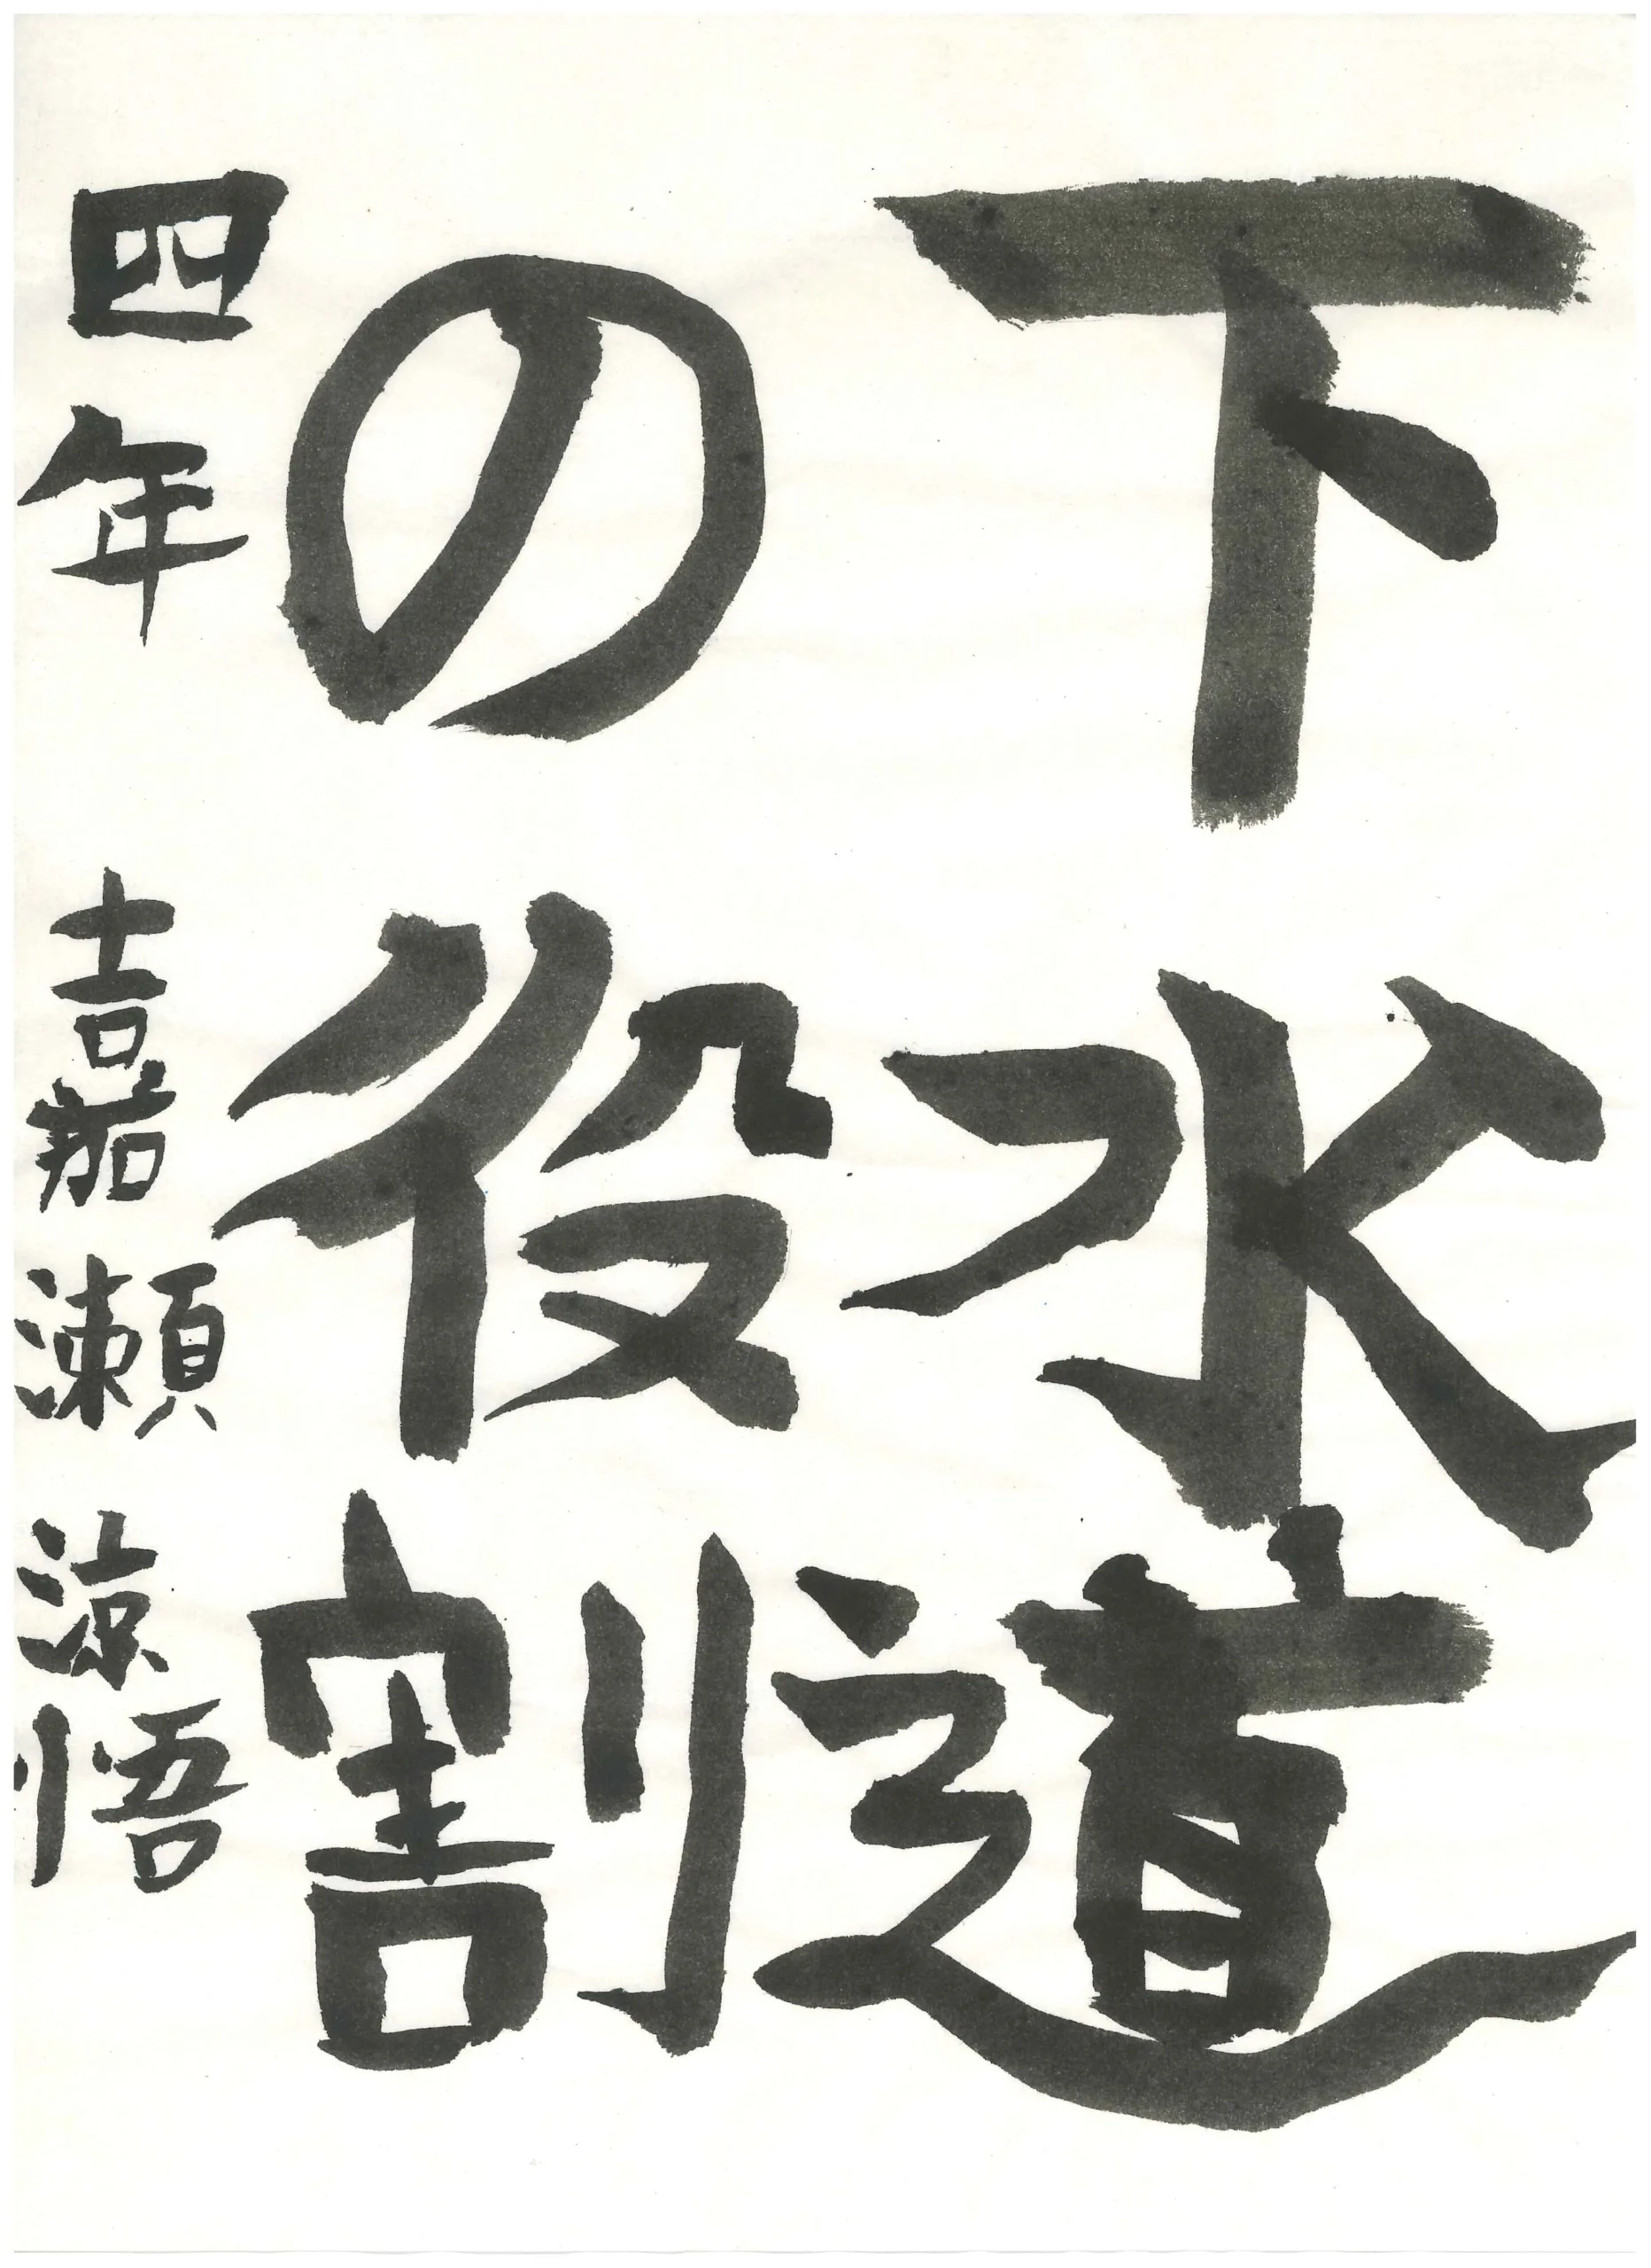 下水道
の役割
四年 嘉瀬涼悟